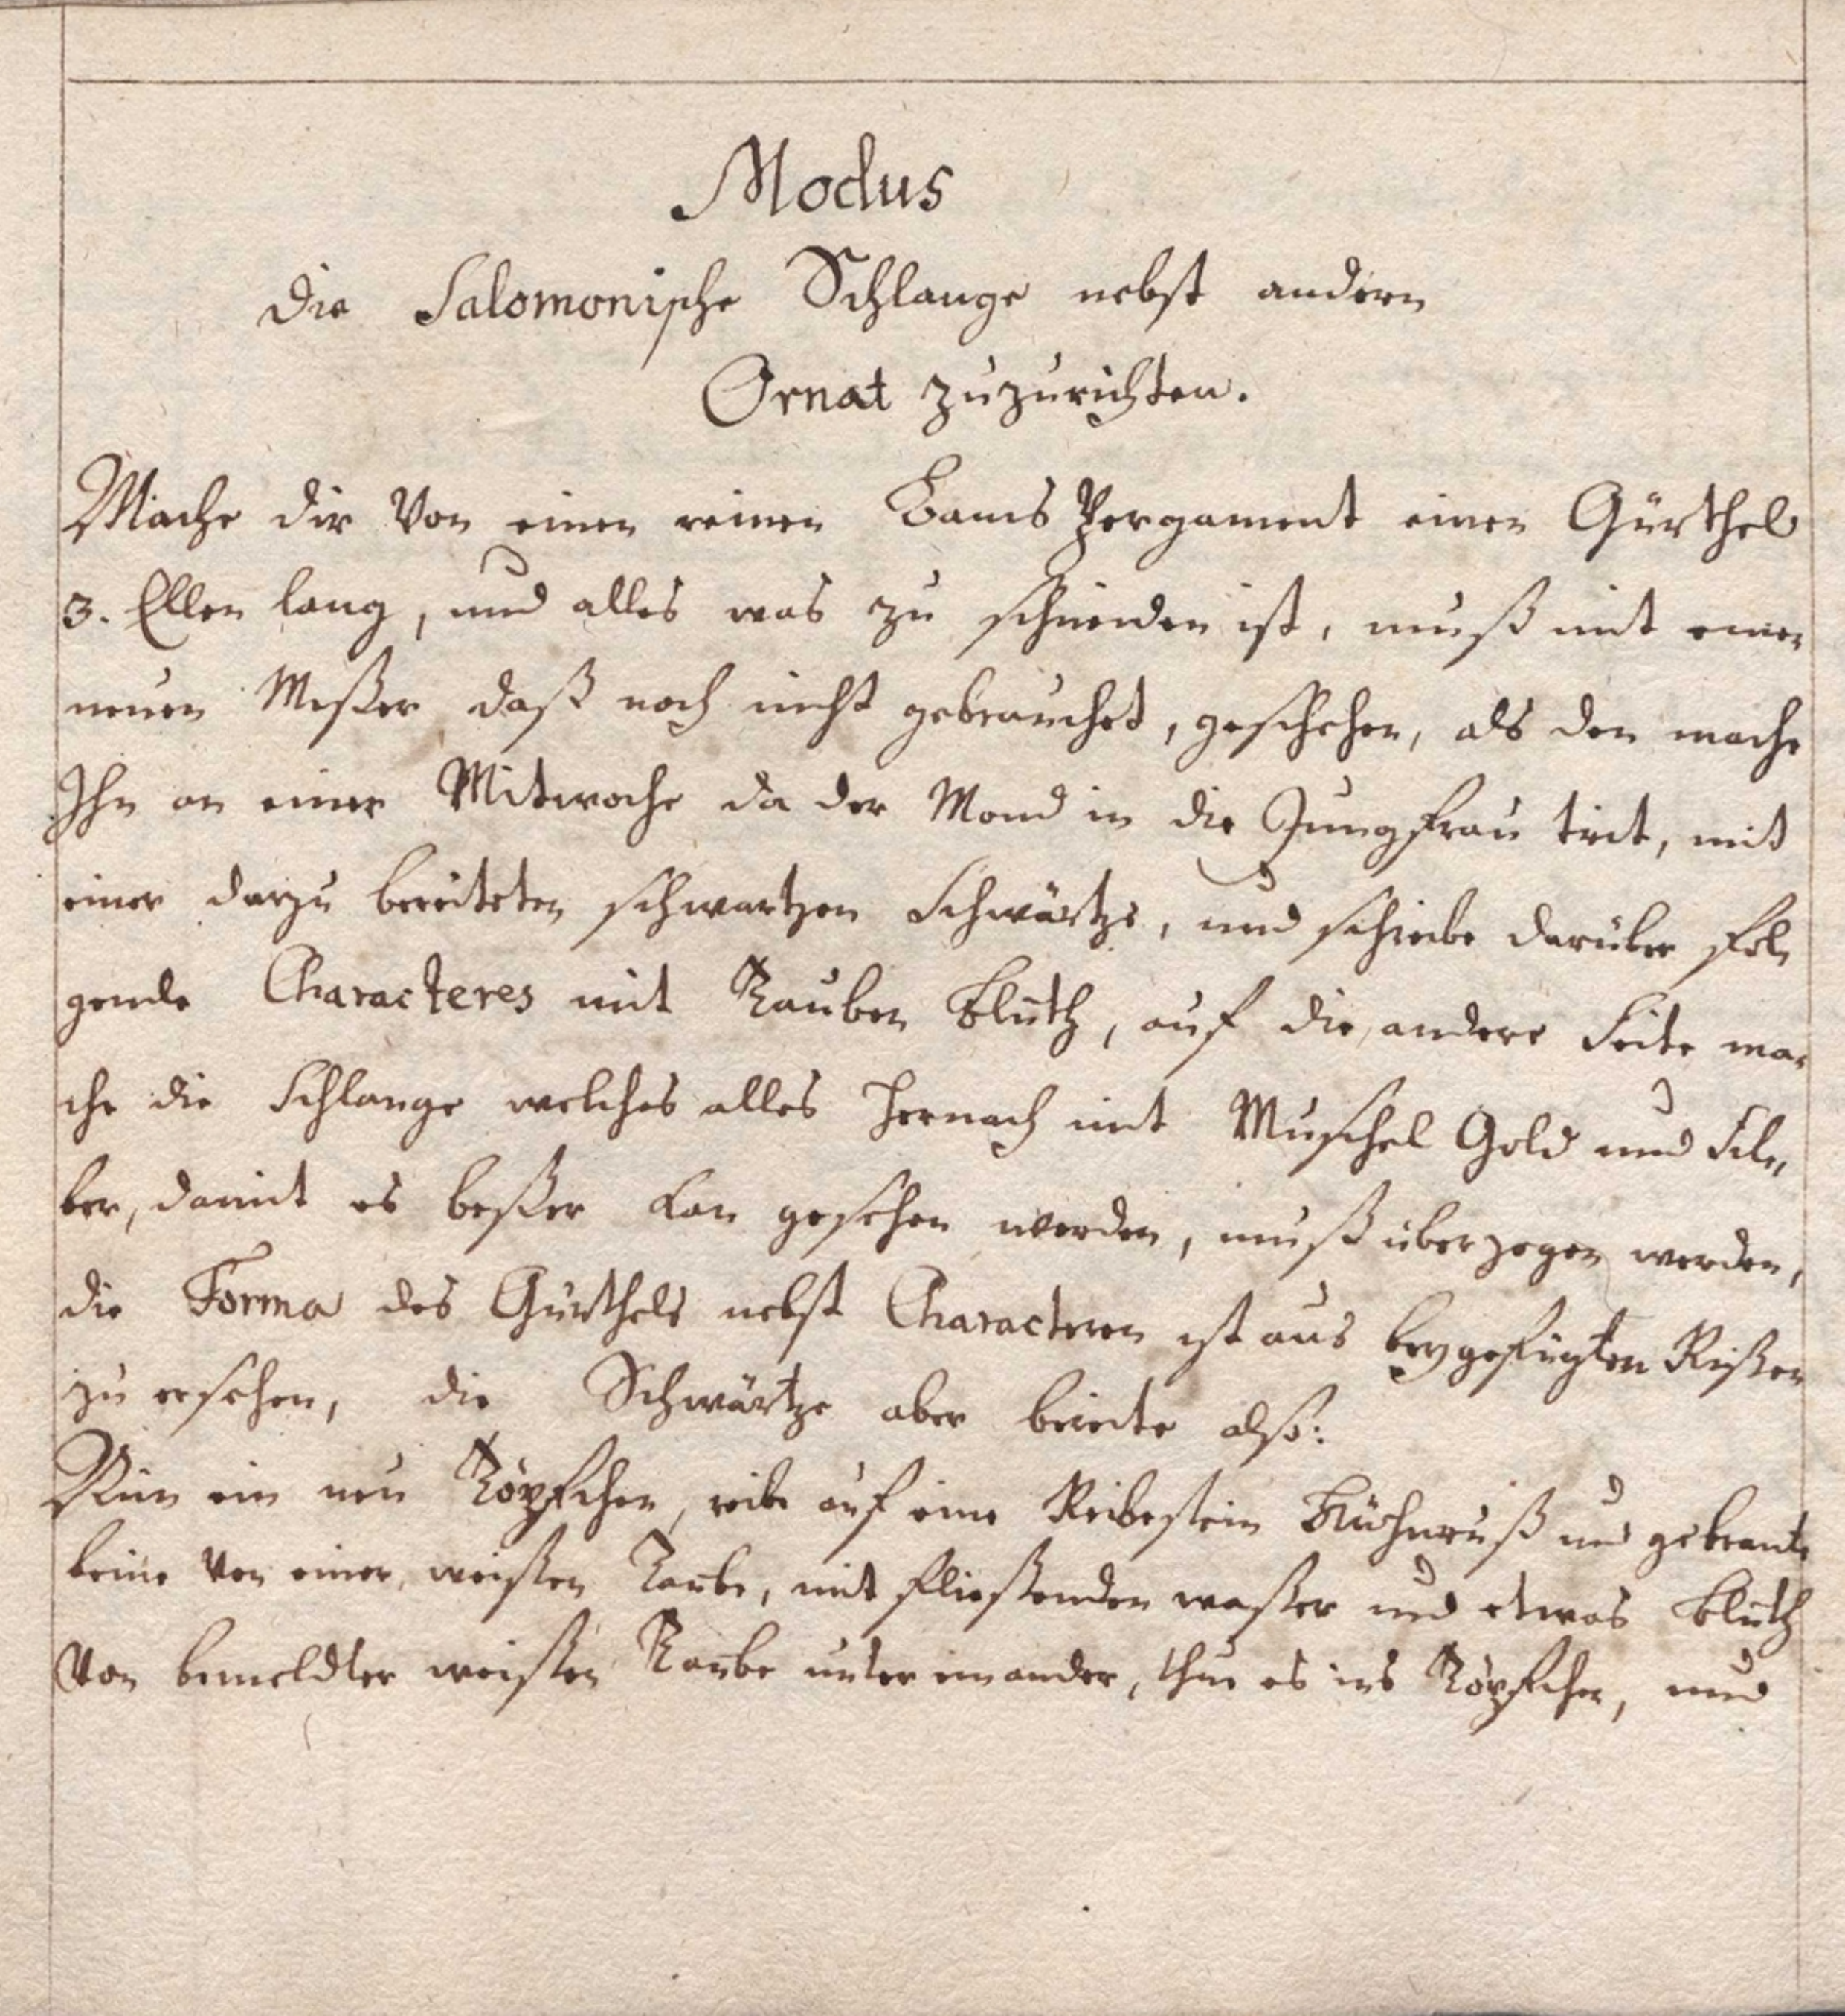 Modus
die Salomonische Schlange nebst andern
Ornat zuzurichten.
Mache dir Von einen reinen Lams Pergament einen Gürthel
3. Ellen lang, und alles was zu schneiden ist, muß mit einen
neuen Meßer daß noch nicht gebrauchet, geschehen, als den mache
Ihn an einer Mitwoche da der Mond in die Jungfrau trit, mit
einer darzu bereiteten schwartzen Schwärtze, und schreibe darüber fol,
gende Characteres mit Tauben Bluth, auf die andere Seite ma,
che die Schlange welches alles hernach mit Muschel Gold und Sil,
ber, damit es beßer kan gesehen werden, muß überzogen werden,
die Forma des Gürthels nebst Characteren ist aus beygefügten Rißen
zu ersehen, die Schwärtze aber bereite also:
Nim ein neu Töpfchen, reibe auf eine Reibestein Kühnruß und gebrante
beine von einer weißen Taube, mit fließenden waßer und etwas Bluth
Von bemeldter weißen Taube unter einander, thue es ins Töpfchen, und